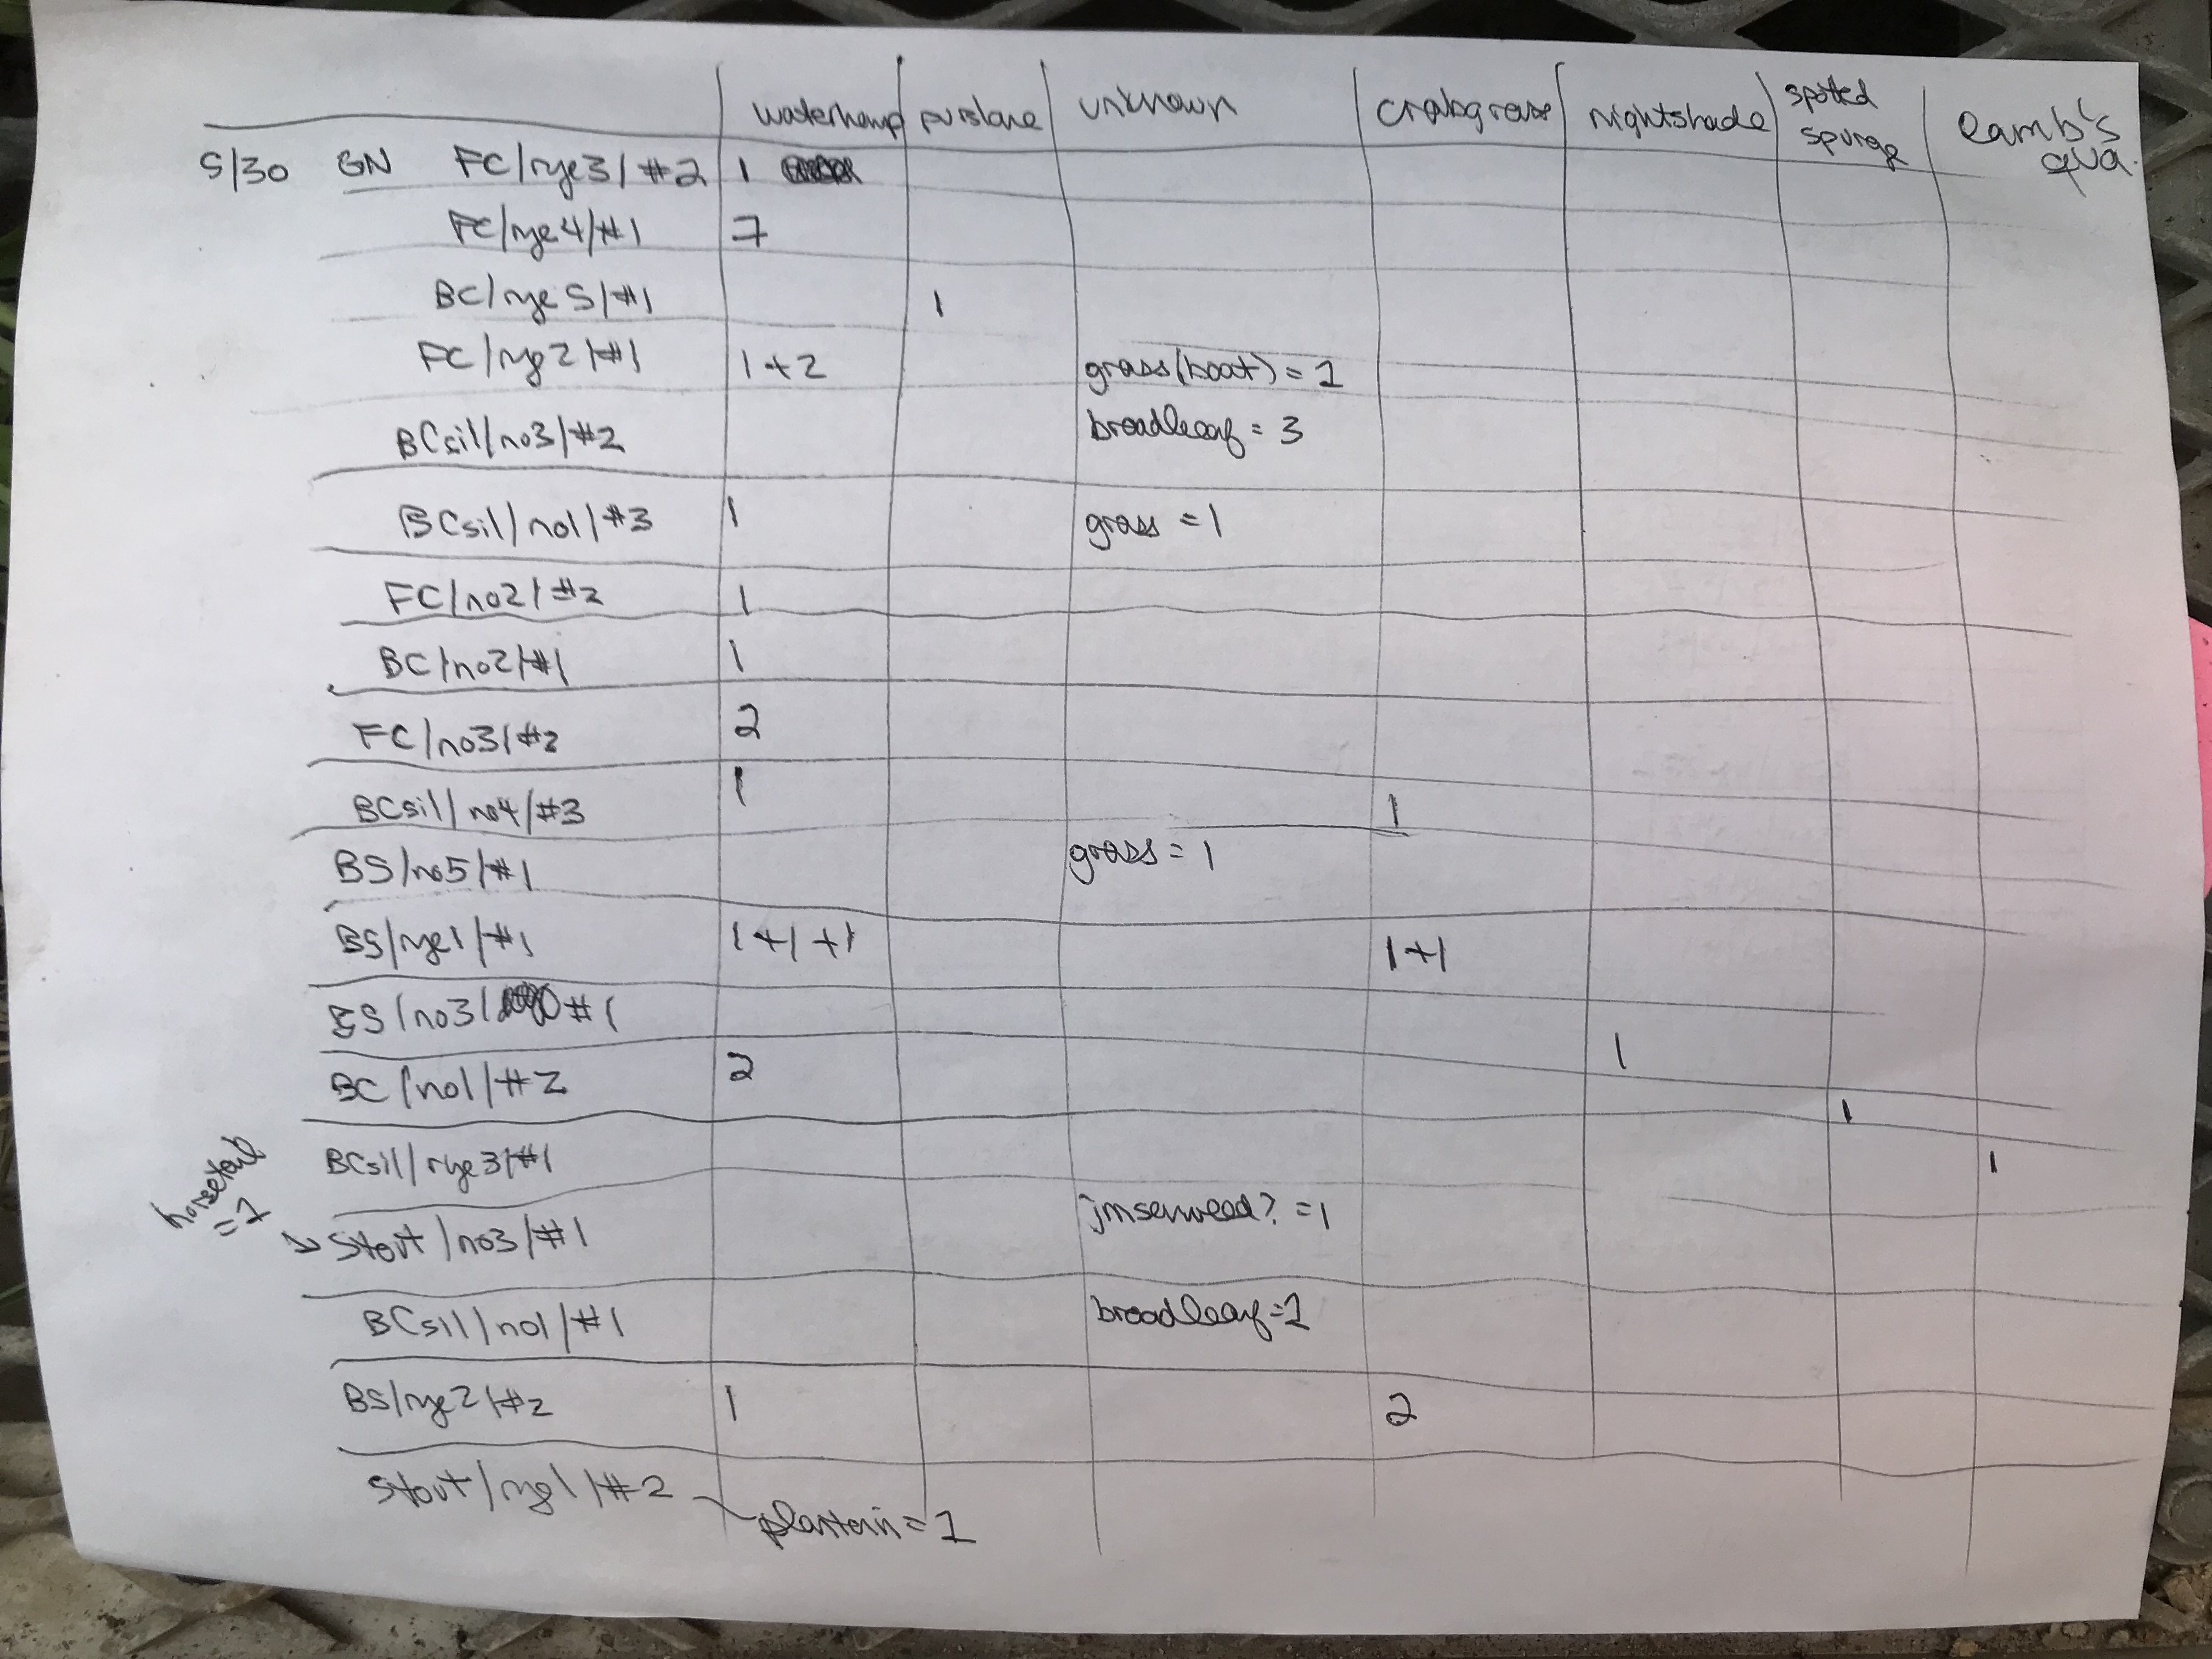 waterhemp purslane unknown crabgrass nightshade spotted spurge lamb's qua.
5/30 GN FC/rye3/#2 1
FC/rye4/#1 7
BC/rye5/#1 1
FC/rye2/#1 1+2 grass(boat)=1
BCsil/no3/#2 broadleaf=3
BCsil/no1/#3 1 grass=1
FC/no2/#2 1
BC/no2/#1 1
FC/no3/#2 2
BCsil/no4/#3 1 1
BS/no5/#1 grass=1
BS/rye1/#1 1+1+1 1+1
BS/no3/#1 1
BC/no1/#2 2 1
BCsil/rye3/#1 1
horsetail
=1
Stout/no3/#1 jmsenweed?=1
BCsil/no1/#1 broadleaf=1
BS/rye2/#2 1 2
Stout/rye1/#2 plantain=1